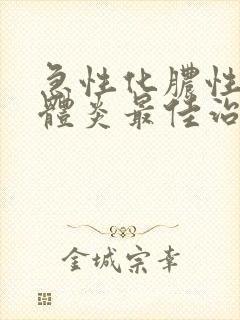 急性化膿性
體炎最佳治
金城宗幸